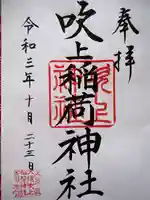 奉拝
吹上稲荷神社
令和三年十月二十三日